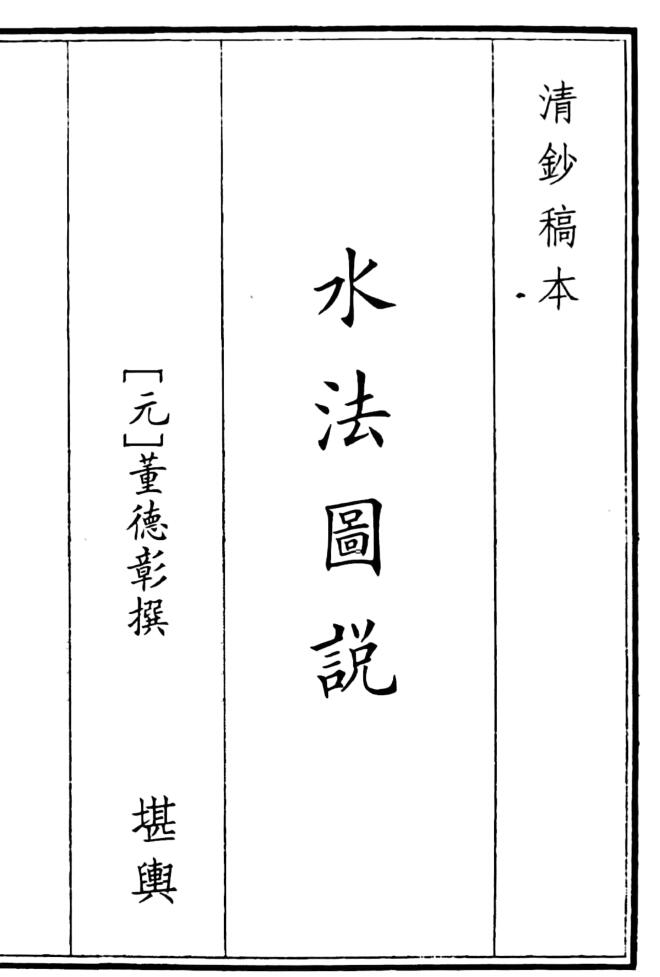 清鈔稿本
水法圖説
[元]董德彰撰
堪輿